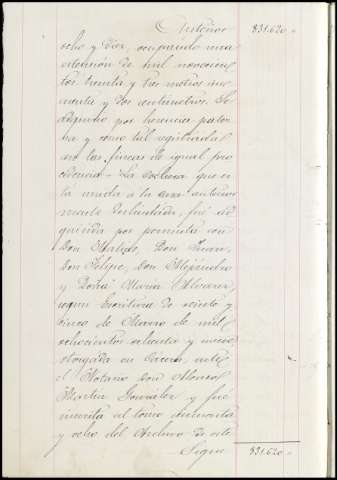 Anterior 831.620
ocho y dos, ocupando una
estensión de mil novecien
tos treinta y tres metros cin
cuenta y dos centímetros. Lo
adquirió por herencia pater
na y como tal registradas
en las fincas de igual pro
cedencia. La que es
tá unida a la casa anterior
mente deslindada, fué ad
quirida por permuta con
Don Don Juan,
Don Felipe, Don Alejandro
y Doña Maria Alvarez,
segun Escritura de veinte y
cinco de Marzo de mil
ochocientos ochenta y nueve
otorgada en ante
el Notario Don Alonso
Martin Gonzalez y fué
inscrita al tomo
y ocho del Archivo de este
Sigue 831.620